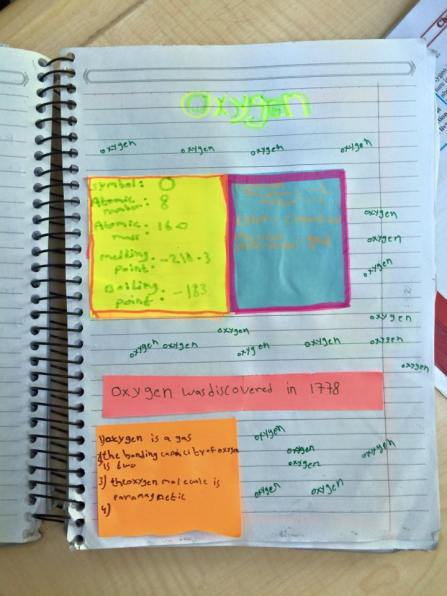 Oxygen
oxygen oxygen oxygen oxygen
symbol: O
Atomic
number: 8
Atomic : 160
mass
melting
point: -218.3
Boiling
point: -183
oxygen
oxygen
oxygen
oxygen
oxygen
oxygen oxygen oxygen oxygen oxygen
oxygen
Oxygen was discovered in 1778
1) oxygen is a gas
the bonding capicity of oxygen
is two
3) the oxygen molecule is
paramagnetic
4)
oxygen
oxygen oxygen
oxygen
oxygen oxygen